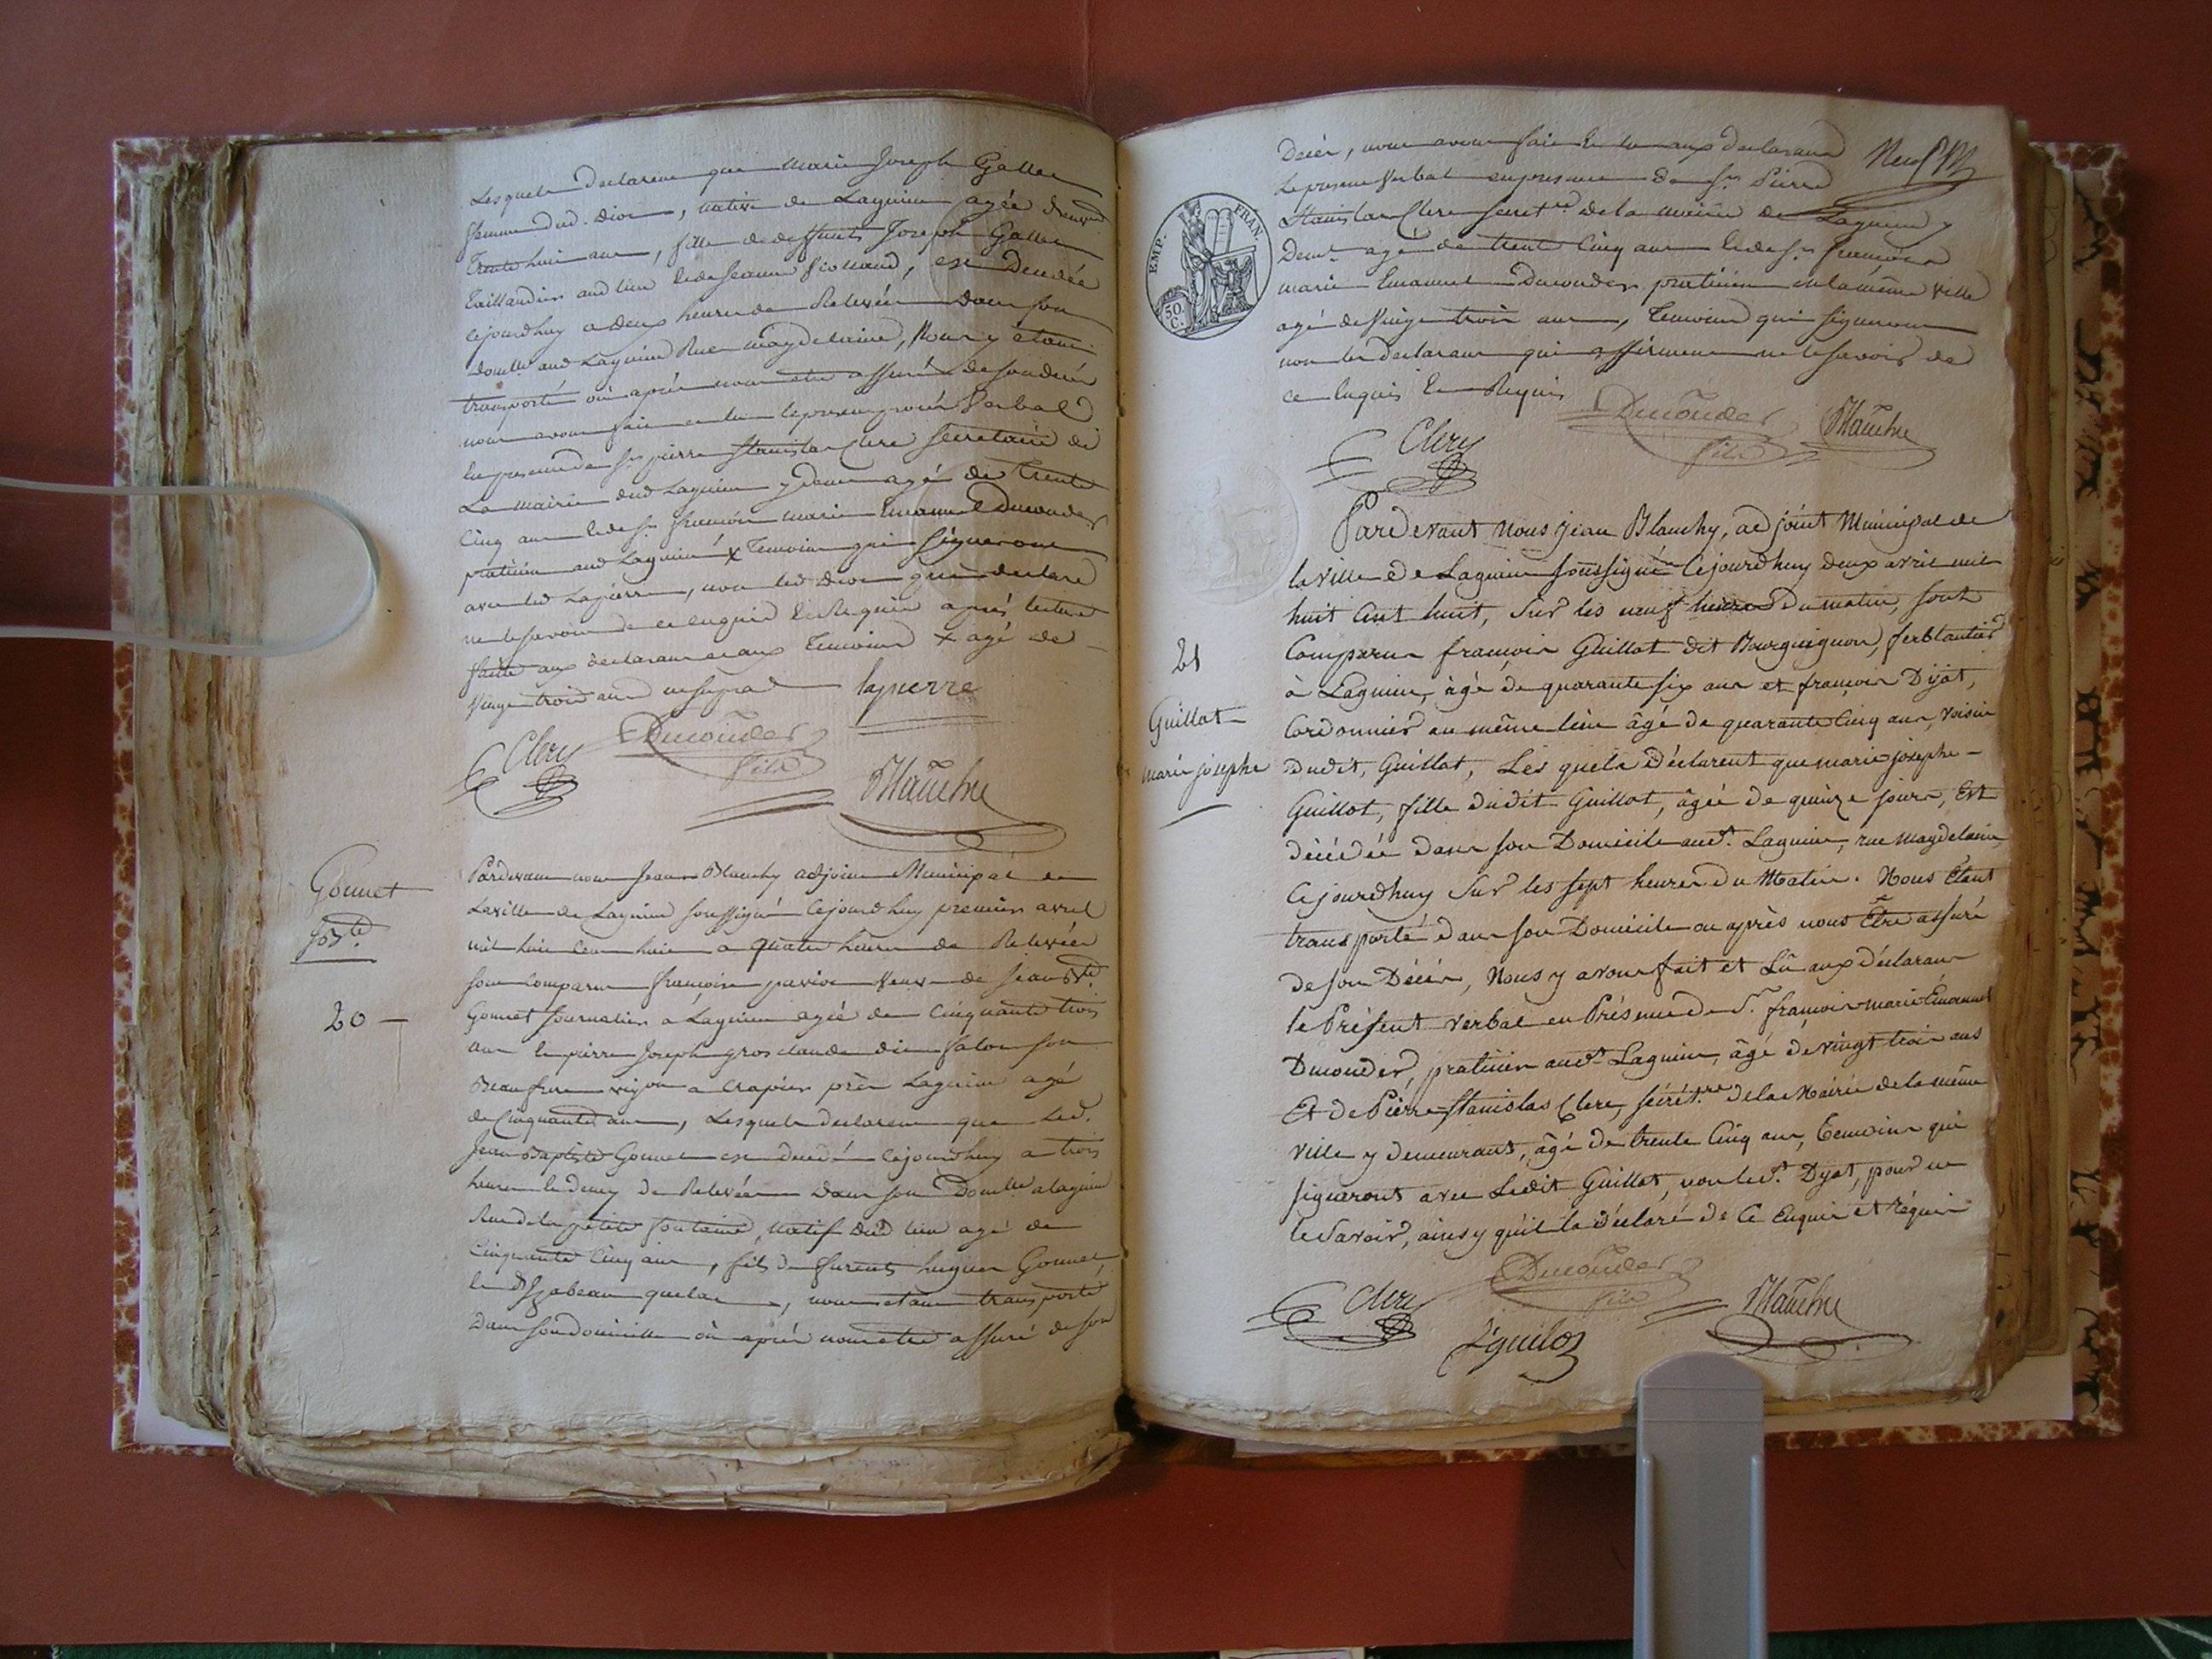 Lesquels declarent que marie Joseph Gallet
femme dud. Dior, native de Lagnieu agée d'environ
trente huit ans, fille de deffunts Joseph Gallet
taillandier aud lieu et de Jeanne, est décédée
cejourdhuy a deux heures de Relevée dans son
domlle aud Lagnieu Rue magdelaine, Nous y etant
transporté où après nous etre assuré de son décès
nous avons fait et lu le present procès Verbal
En presence de Sr pierre Stanislas Clerc Secretaire de
La mairie dud Lagnieu y demt agé de Trente
Cinq ans et de Sr françois marie Emanuel Ducouder
praticien aud Lagnieu x Temoins qui Signeront
avec led Lapierre, non led Dior qui a declaré
ne le savoir de ce enquis Et Requis après lecture
faite aux declarants et aux Temoins x agé de
vingt trois ans lapierre
Clerc Ducouder
fils Blanchy
Gonnet
Bte.
20
Pardevant nous Jean Blanchy adjoint Municipal de
La ville de Lagnieu soussigné Cejourdhuy premier avril
mil huit cent huit a quatre heures de Relevée
sont comparus françoise veuve de Jean Bte.
Gonnet Journalier a Lagnieu agée de Cinquante trois
ans Et pierre Joseph gros claude dit son
Beaufrere a Crapier près Lagnieu agé
de Cinquante ans, Lesquels declarent que Led.
Jean Baptiste Gonnet est decedé Cejourdhuy a trois
heures et demy de Relevée Dans son Domlle a lagnieu
Rue de la petite fontaine, natif dud lieu agé de
Cinquante Cinq ans, fils de furents hugues Gonnet,
et d'Izabeau, nous etant transporté
Dans son domicille où après nous etre assuré de son
Décès, nous avons fait Et lu aux declarants
Le present Verbal en presence de Sr Pierre
Stanislas Clerc Secretre de la mairie de Lagnieu y
Demt agé de trente Cinq ans Et de Sr françois
marie Emanuel Ducouder praticien en la même ville
agé de Vingt trois ans, Temoins qui signeront
non les declarants qui affirment ne le savoir de
ce Enquis Et Requis
Clerc Ducouder fils Blanchy
EMP. FRAN.
50 C.
21
Guillot
marie josephe
Pardevant Nous jean Blanchy, adjoint Municipal de
la ville de Lagnieu soussigné Cejourdhuy deux avril mil
huit Cent huit, Sur les neuf heures du matin, sont
Comparus françois Guillot dit Bourguignon, ferblantier
à Lagnieu, âgé de quarante six ans et françois Dijat,
Cordonnier au même lieu âgé de quarante Cinq ans, voisin
Dudit, Guillot, Les quels Déclarent que marie josephe -
Guillot, fille dudit Guillot, âgée de quinze jours, Est
décédée dans son Domicile audt. Lagnieu, rue magdelaine,
Cejourdhuy Sur les sept heures du Matin. Nous Etant
transporté dans son Domicile ou après nous Etre assuré
de son Décès, Nous y avons fait et Lû aux déclarans
le Présent Verbal en Présence de Sr. françois marie Emanuel
Ducouder, praticien audt Lagnieu, âgé de vingt trois ans
Et de Pierre Stanislas Clerc, sécrétre de la Mairie de la même
ville y demeurant, âgé de trente Cinq ans, Temoins qui
signeront avec Ledit Guillot, non led. Dijat, pour ne
le Savoir, ainsy qu'il la déclaré de Ce Enquis et réquis
Clerc Ducouder fils Blanchy